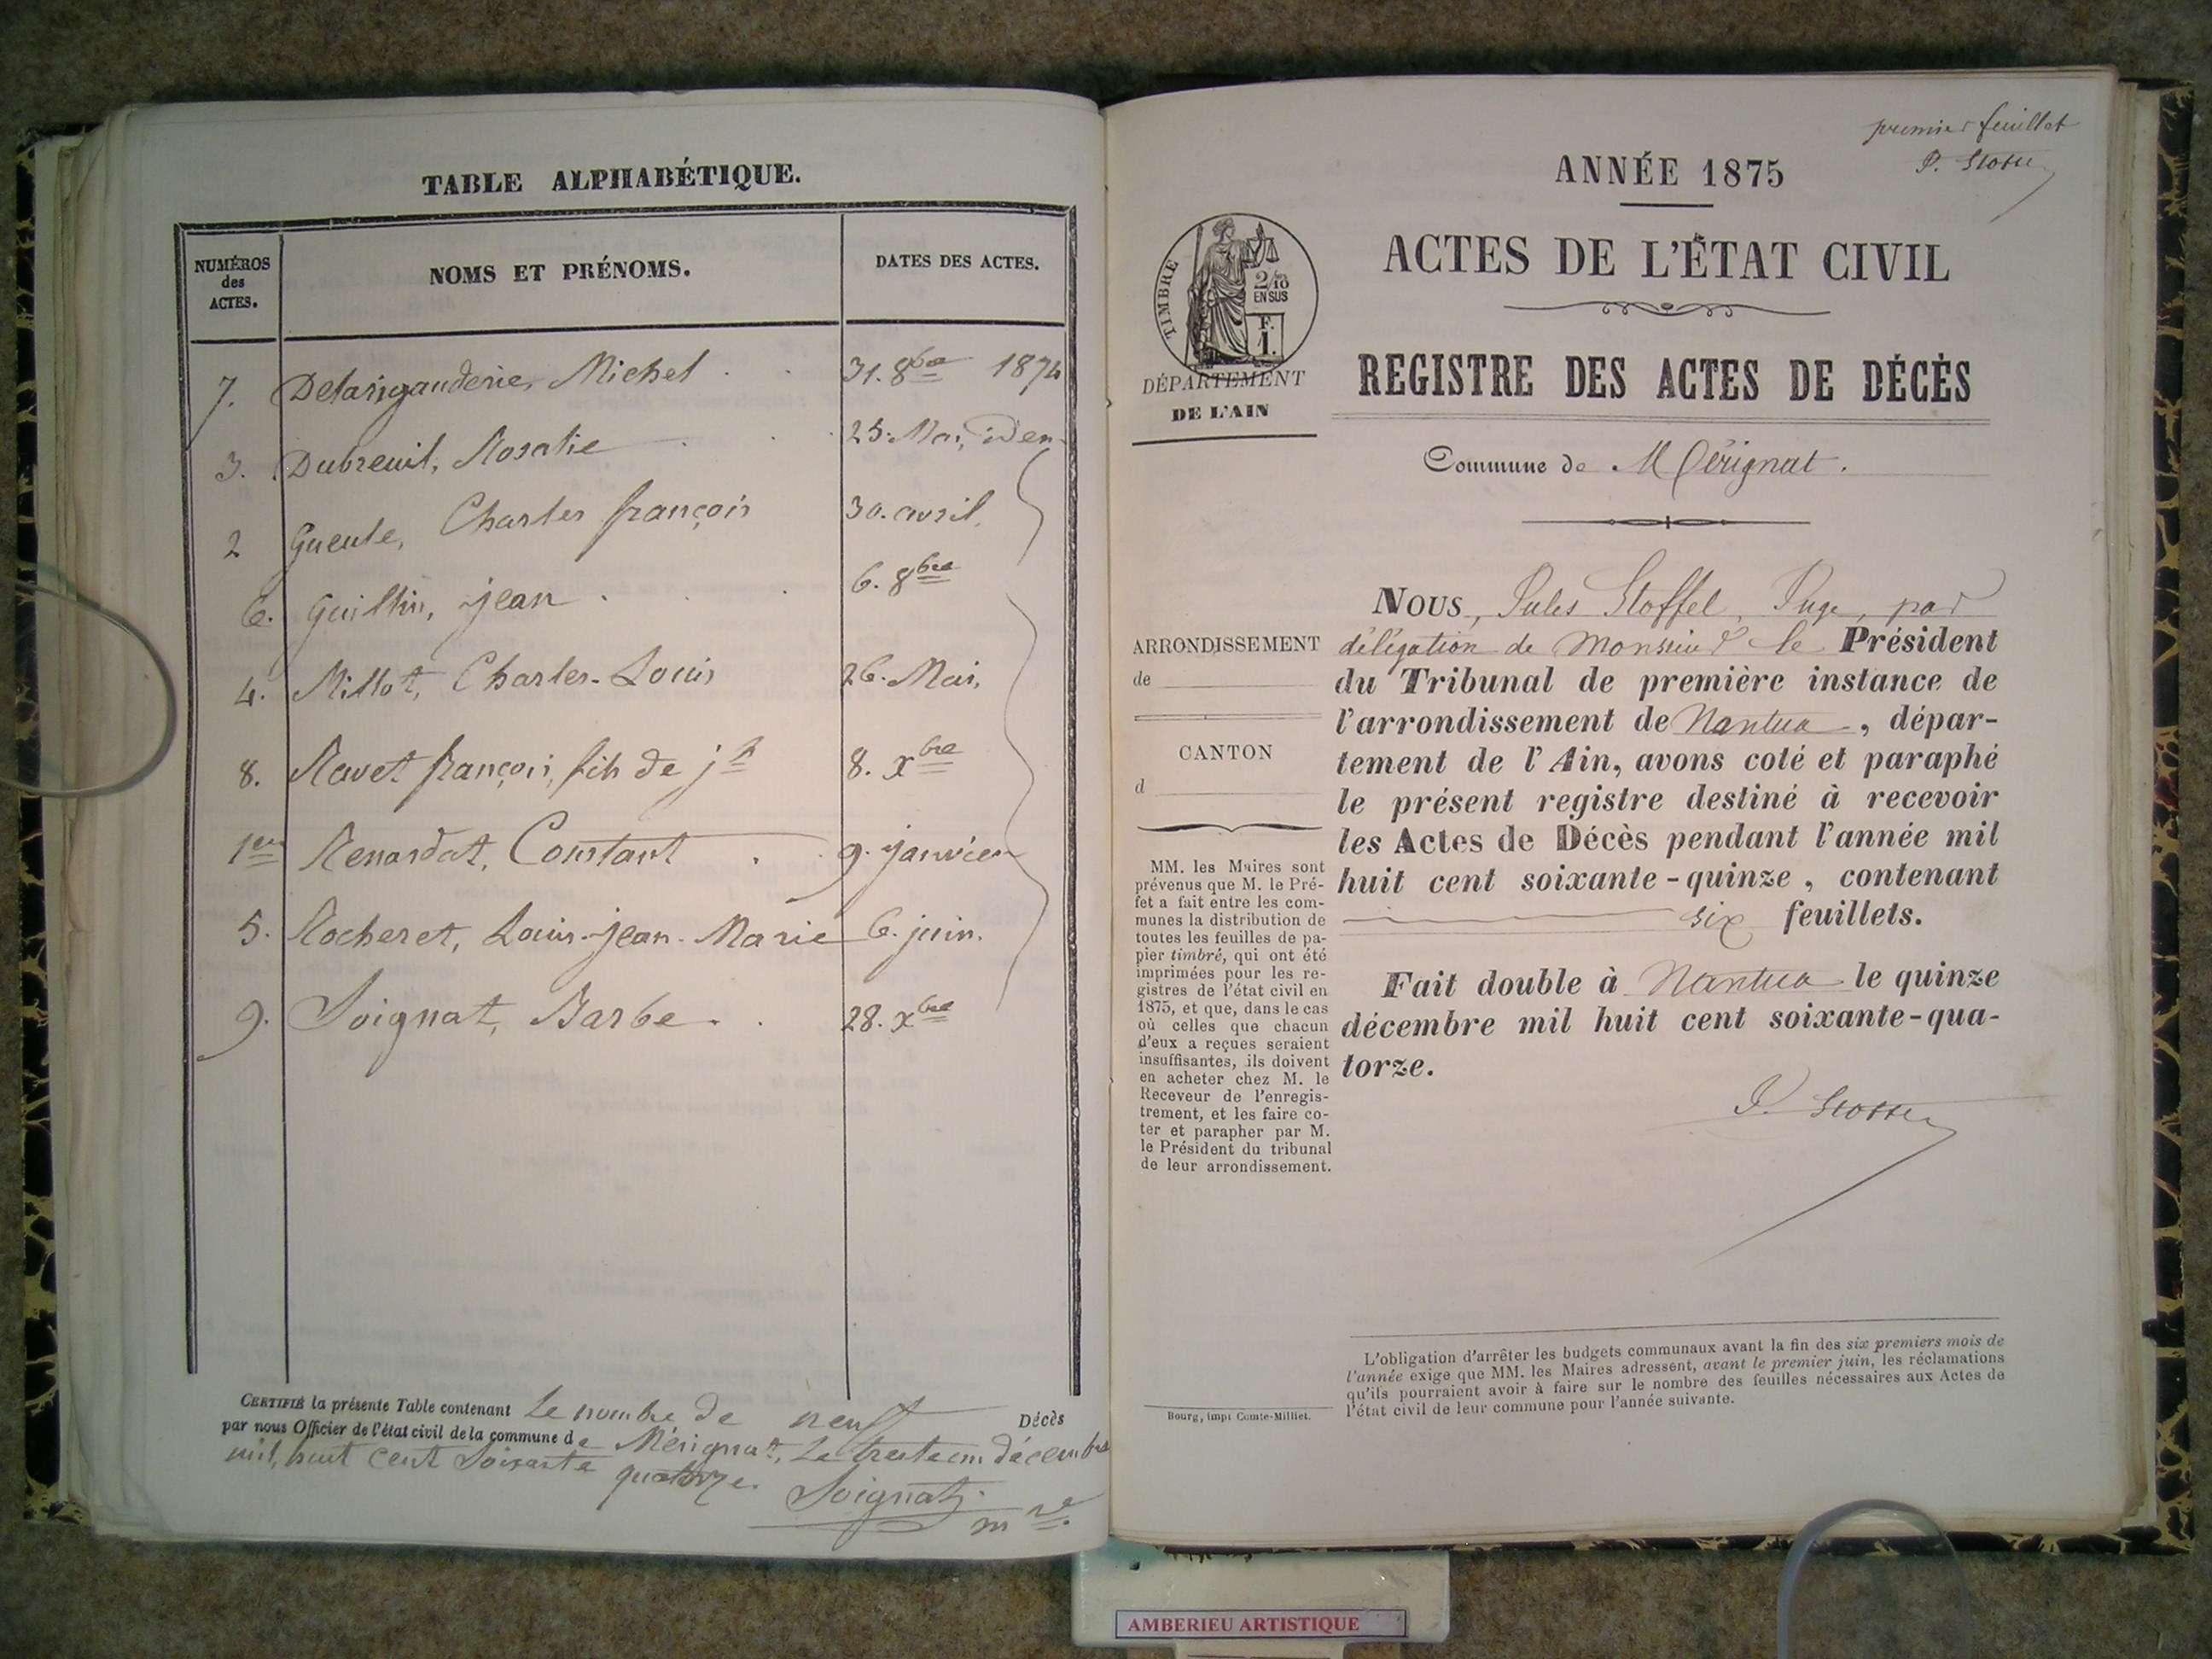 TABLE ALPHABÉTIQUE.
NUMÉROS des ACTES.
NOMS ET PRÉNOMS.
DATES DES ACTES.
7. Delarigauderie, Michel . . 31. 8bre 1874
3. Dubreuil, Rosalie . . 25. Mai, idem
2 Gueule, Charles françois 30. avril,
6. Guillin, jean . . 6. 8bre
4. Millot, Charles-Louis 26. Mai,
8. Ravet françois, fils de jh 8. xbre
1er Renardat, Constant . . 9. janvier
5. Rocheret, Louis-jean-Marie 6. juin.
9. Soignat, Barbe . . 28. xbre
CERTIFIÉ la présente Table contenant Le nombre de neuf Décès
par nous Officier de l'état civil de la commune de Mérignat, Le trente un décembre
mil, huit cent Soixante quatorze.
Soignat
mre
premier feuillet
ANNÉE 1875
ACTES DE L'ÉTAT CIVIL
TIMBRE
2/10
EN SUS
F.
1.
DÉPARTEMENT
DE L'AIN
REGISTRE DES ACTES DE DÉCÈS
Commune de Mérignat.
NOUS, Jules Stoffel, Juge, par
délégation de Monsieur le Président
du Tribunal de première instance de
l'arrondissement de Nantua, dépar-
tement de l'Ain, avons coté et paraphé
le présent registre destiné à recevoir
les Actes de Décès pendant l'année mil
huit cent soixante-quinze, contenant
six feuillets.
Fait double à Nantua le quinze
décembre mil huit cent soixante-qua-
torze.
ARRONDISSEMENT
de
CANTON
d
MM. les Maires sont
prévenus que M. le Pré-
fet a fait entre les com-
munes la distribution de
toutes les feuilles de pa-
pier timbré, qui ont été
imprimées pour les re-
gistres de l'état civil en
1875, et que, dans le cas
où celles que chacun
d'eux a reçues seraient
insuffisantes, ils doivent
en acheter chez M. le
Receveur de l'enregis-
trement, et les faire co-
ter et parapher par M.
le Président du tribunal
de leur arrondissement.
Bourg, impr Comte-Milliet.
L'obligation d'arrêter les budgets communaux avant la fin des six premiers mois de
l'année exige que MM. les Maires adressent, avant le premier juin, les réclamations
qu'ils pourraient avoir à faire sur le nombre des feuilles nécessaires aux Actes de
l'état civil de leur commune pour l'année suivante.
AMBERIEU ARTISTIQUE